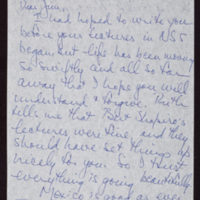 Dear Jim,
I had hoped to write you
before your lectures in NSS
began but life has been moving
so swiftly and all so far
away that I hope you will
understand & forgive. Ruth
tells me that Prof Shapiro's
lectures were fine, and they
should have set things up
nicely for you. So I trust
everything is going beautifully.
Mexico is good as ever